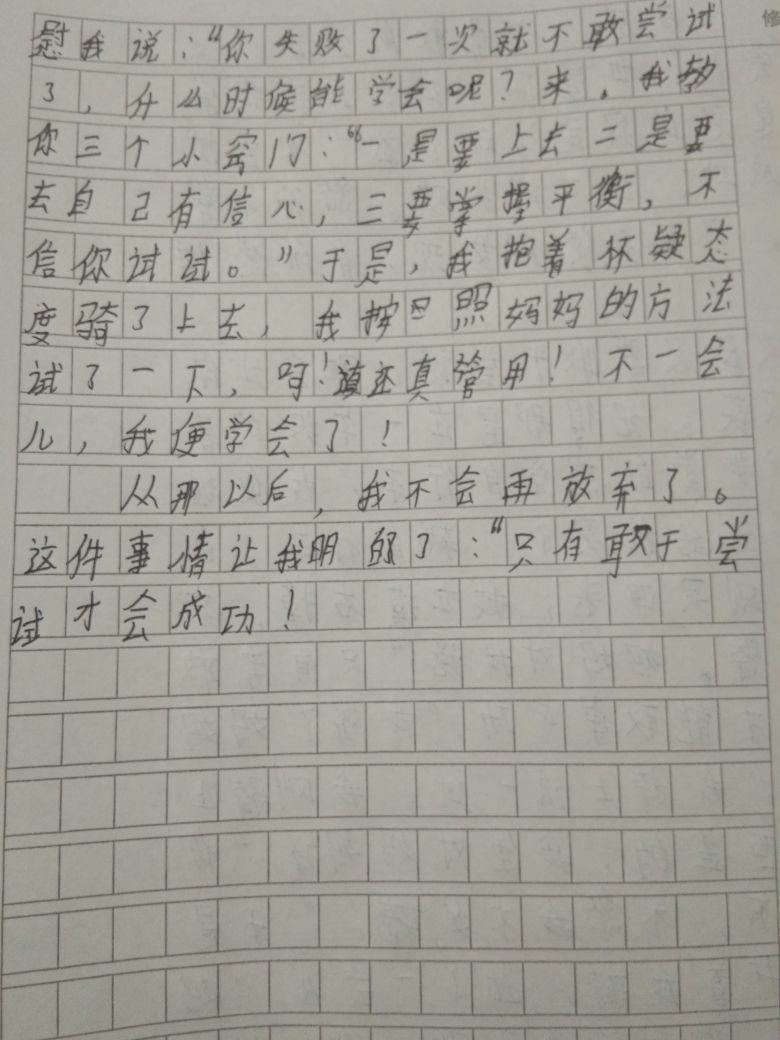 修
慰我说:“你失败了一次就不敢尝试
了,什么时候能学会呢?来,我教
你三个小窍门:“一是要上去二是要
去自己有信心,三要掌握平衡,不
信你试试。”于是,我抱着怀疑态
度骑了上去,我按照妈妈的方法
试了一下,呵!这还真管用!不一会
儿,我便学会了!
从那以后,我不会再放弃了。
这件事情让我明白了:“只有敢于尝
试才会成功!